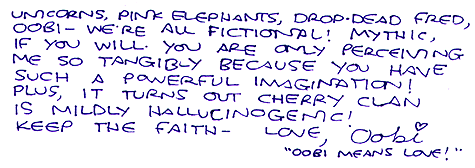 UNICORNS, PINK ELEPHANTS, DROP-DEAD FRED,
OOBI- WE'RE ALL FICTIONAL! MYTHIC,
IF YOU WILL. YOU ARE ONLY PERCEIVING
ME SO TANGIBLY BECAUSE YOU HAVE
SUCH A POWERFUL IMAGINATION!
PLUS, IT TURNS OUT CHERRY CLAN
IS MILDLY HALLUCINOGENIC!
KEEP THE FAITH- LOVE, Oobi
"OOBI MEANS LOVE!"